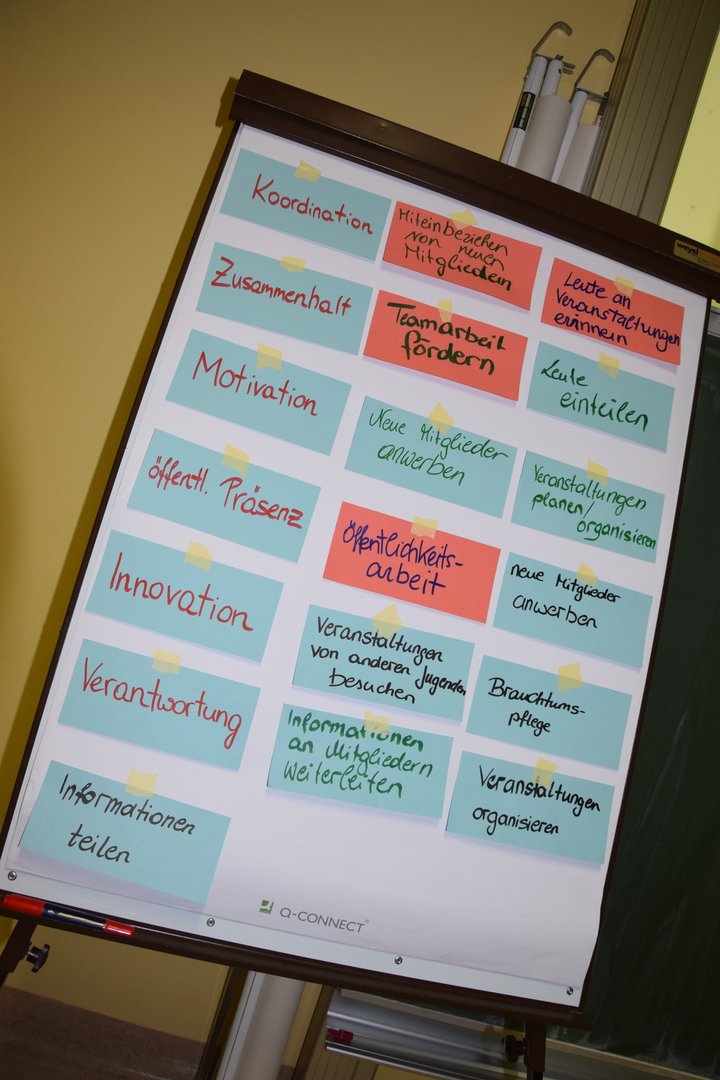 Koordination
Zusammenhalt
Motivation
öffentl. Präsenz
Innovation
Verantwortung
Informationen
teilen
Miteinbeziehen
von neuen
Mitgliedern
Teamarbeit
fördern
Neue Mitglieder
anwerben
Öffentlichkeits-
arbeit
Veranstaltungen
von anderen Jugenden
besuchen
Informationen
an Mitgliedern
weiterleiten
Leute an
Veranstaltungen
erinnern
Leute
einteilen
Veranstaltungen
planen/
organisieren
neue Mitglieder
anwerben
Brauchtums-
pflege
Veranstaltungen
organisieren
Q-CONNECT®